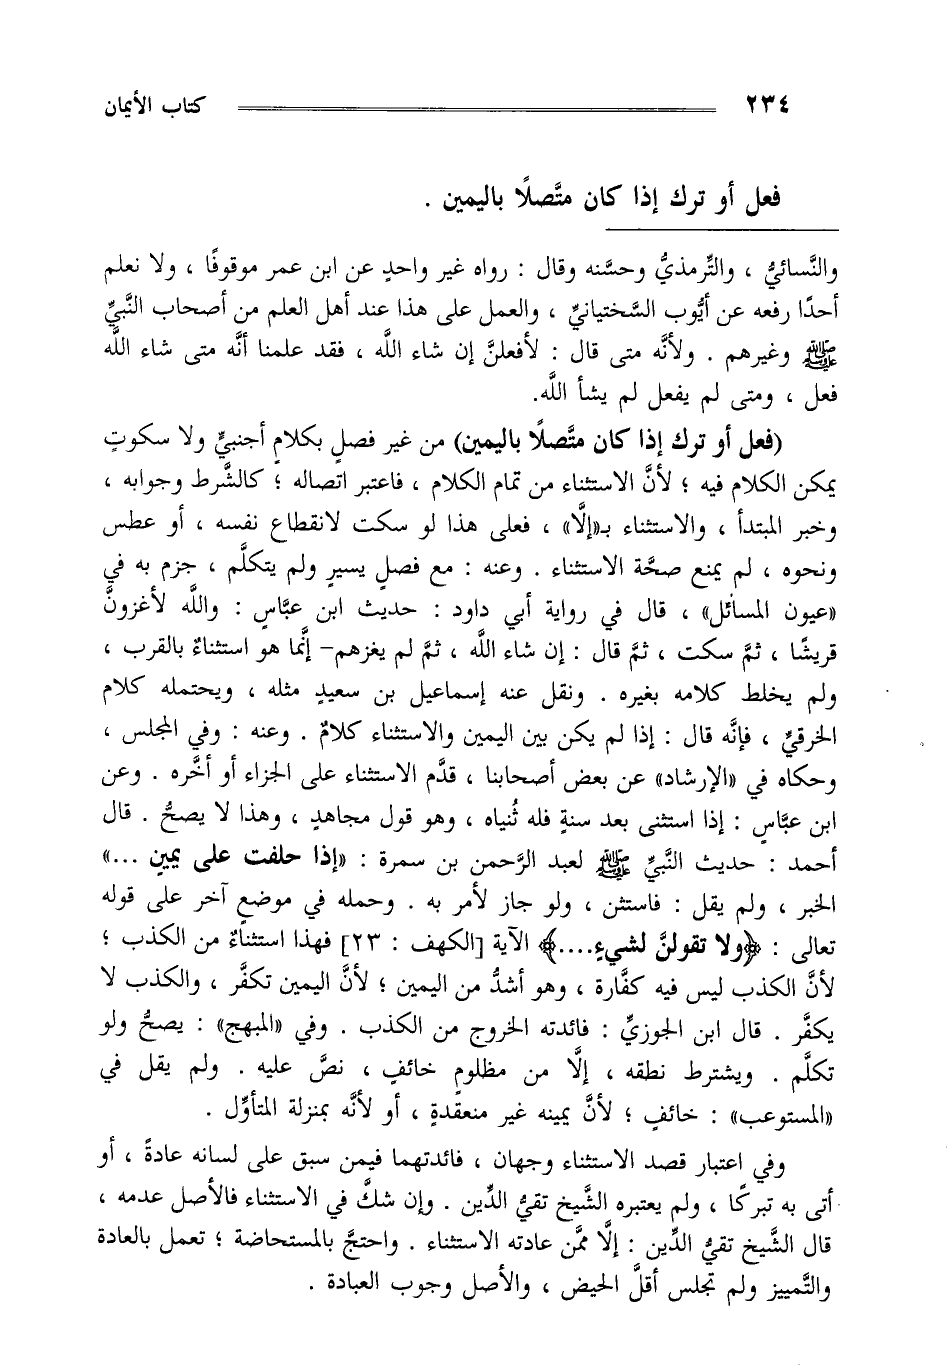 ٢٣٤ كتاب الأيمان
فعل أو ترك إذا كان متَّصلًا باليمين .
والنَّسائيُّ ، والتِّرمذيُّ وحسَّنه وقال : رواه غير واحدٍ عن ابن عمر موقوفًا ، ولا نعلم
أحدًا رفعه عن أيُّوب السَّختيانيِّ ، والعمل على هذا عند أهل العلم من أصحاب النَّبيِّ
ﷺ وغيرهم . ولأنَّه متى قال : لأفعلنَّ إن شاء اللَّه ، فقد علمنا أنَّه متى شاء اللَّه
فعل ، ومتى لم يفعل لم يشأ اللَّه.
(فعل أو ترك إذا كان متَّصلًا باليمين) من غير فصلٍ بكلامٍ أجنبيٍّ ولا سكوتٍ
يمكن الكلام فيه ؛ لأنَّ الاستثناء من تمام الكلام ، فاعتبر اتصاله ؛ كالشَّرط وجوابه ،
وخبر المبتدأ ، والاستثناء بـ«إلَّا» ، فعلى هذا لو سكت لانقطاع نفسه ، أو عطس
ونحوه ، لم يمنع صحَّة الاستثناء . وعنه : مع فصلٍ يسيرٍ ولم يتكلَّم ، جزم به في
«عيون المسائل» ، قال في رواية أبي داود : حديث ابن عبَّاسٍ : واللَّه لأغزونَّ
قريشًا ، ثمَّ سكت ، ثمَّ قال : إن شاء اللَّه ، ثمَّ لم يغزهم– إنَّما هو استثناءٌ بالقرب ،
ولم يخلط كلامه بغيره . ونقل عنه إسماعيل بن سعيدٍ مثله ، ويحتمله كلام
الخرقيِّ ، فإنَّه قال : إذا لم يكن بين اليمين والاستثناء كلامٌ . وعنه : وفي المجلس ،
وحكاه في «الإرشاد» عن بعض أصحابنا ، قدَّم الاستثناء على الجزاء أو أخَّره . وعن
ابن عبَّاسٍ : إذا استثنى بعد سنةٍ فله ثُنياه ، وهو قول مجاهدٍ ، وهذا لا يصحُّ . قال
أحمد : حديث النَّبيِّ ﷺ لعبد الرَّحمن بن سمرة : «إذا حلفت على يمينٍ ...»
الخبر ، ولم يقل : فاستثن ، ولو جاز لأمر به . وحمله في موضعٍ آخر على قوله
تعالى : ﴿ولا تقولنَّ لشيءٍ....﴾ الآية [الكهف : ٢٣] فهذا استثناءٌ من الكذب ؛
لأنَّ الكذب ليس فيه كفَّارة ، وهو أشدُّ من اليمين ؛ لأنَّ اليمين تكفَّر ، والكذب لا
يكفَّر . قال ابن الجوزيِّ : فائدته الخروج من الكذب . وفي «المبهج» : يصحُّ ولو
تكلَّم . ويشترط نطقه ، إلَّا من مظلومٍ خائفٍ ، نصَّ عليه . ولم يقل في
«المستوعب» : خائفٍ ؛ لأنَّ يمينه غير منعقدةٍ ، أو لأنَّه بمنزلة المتأوِّل .
وفي اعتبار قصد الاستثناء وجهان ، فائدتهما فيمن سبق على لسانه عادةً ، أو
أتى به تبركًا ، ولم يعتبره الشَّيخ تقيُّ الدِّين . وإن شكَّ في الاستثناء فالأصل عدمه ،
قال الشَّيخ تقيُّ الدِّين : إلَّا ممَّن عادته الاستثناء . واحتجَّ بالمستحاضة ؛ تعمل بالعادة
والتَّمييز ولم تجلس أقلَّ الحيض ، والأصل وجوب العبادة .